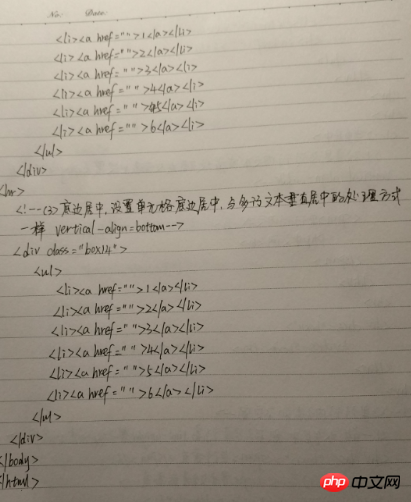 No. Date
<li><a href="">1</a></li>
<li><a href="">2</a></li>
<li><a href="">3</a><li>
<li><a href="">4</a><li>
<li><a href="">5</a><li>
<li><a href="">6</a></li>
</ul>
</div>
<hr>
<!--(3)底边居中,设置单元格底边居中,与多行文本垂直居中的处理方式
一样 vertical-align=bottom-->
<div class="box14">
<ul>
<li><a href="">1</a></li>
<li><a href="">2</a></li>
<li><a href="">3</a></li>
<li><a href="">4</a></li>
<li><a href="">5</a></li>
<li><a href="">6</a></li>
</ul>
</div>
</body>
</html>
php 中文网